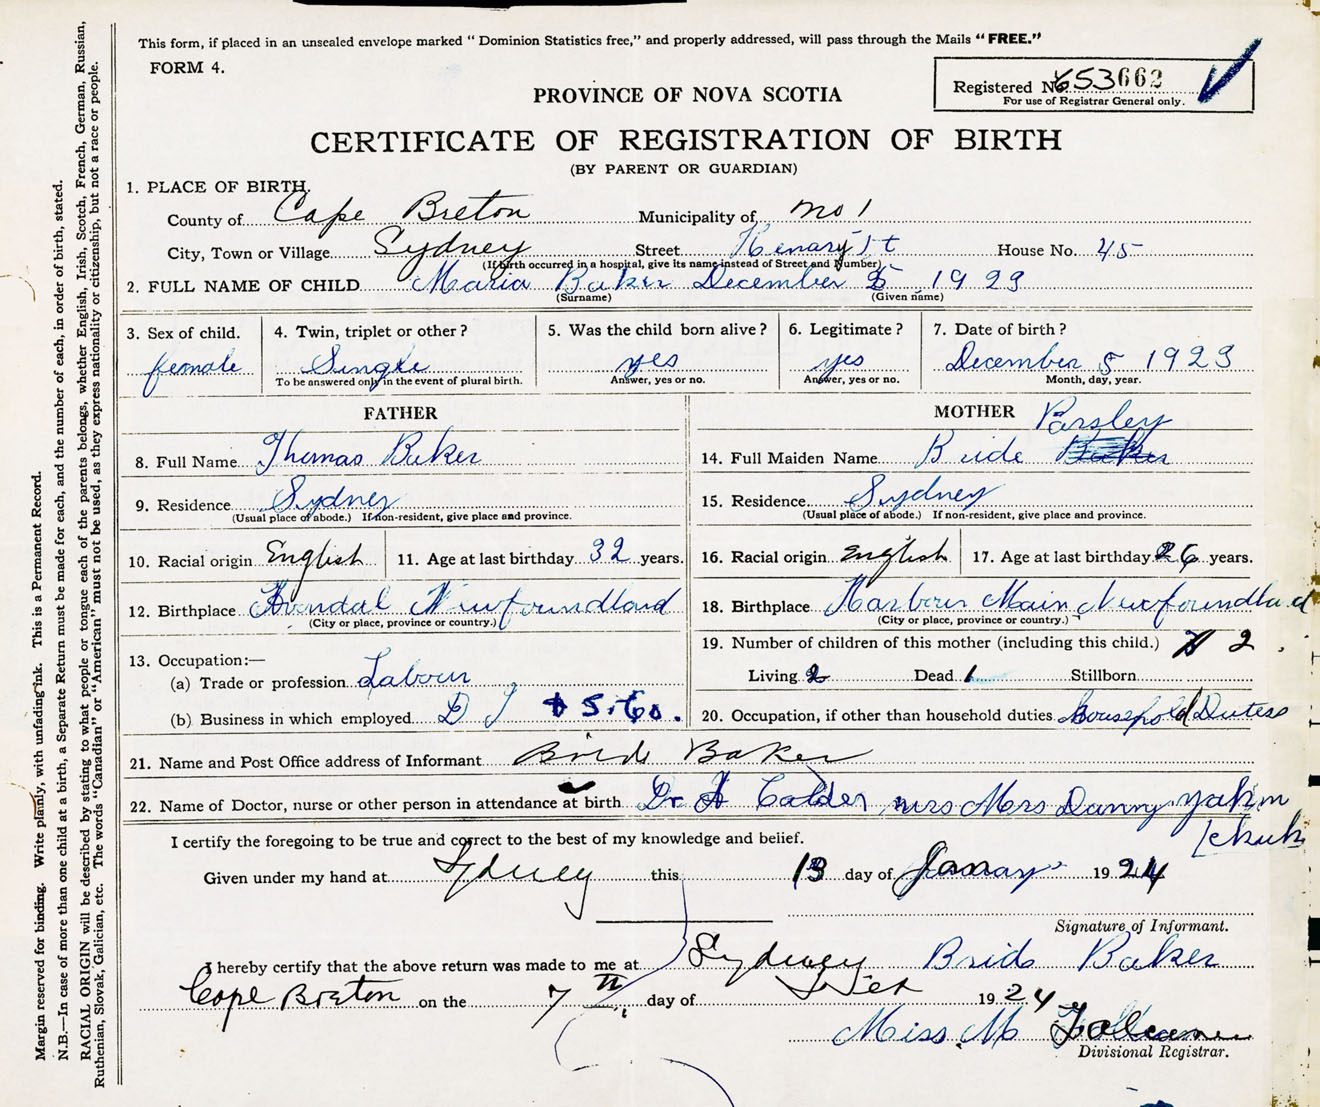 This form, if placed in an unsealed envelope marked "Dominion Statistics free," and properly addressed, will pass through the Mails "FREE."
FORM 4.
Registered No. 653662
For use of Registrar General only.
PROVINCE OF NOVA SCOTIA
CERTIFICATE OF REGISTRATION OF BIRTH
(BY PARENT OR GUARDIAN)
1. PLACE OF BIRTH.
County of Cape Breton Municipality of No 1
City, Town or Village Sydney Street Henary St House No. 45
(If birth occurred in a hospital, give its name instead of Street and Number)
2. FULL NAME OF CHILD Maria Baker December 5 1923
(Surname) (Given name)
3. Sex of child. 4. Twin, triplet or other? 5. Was the child born alive? 6. Legitimate? 7. Date of birth?
female Single yes yes December 5 1923
To be answered only in the event of plural birth. Answer, yes or no. Answer, yes or no. Month, day, year.
FATHER MOTHER
Parsley
8. Full Name Thomas Baker 14. Full Maiden Name Bride Baker
9. Residence Sydney 15. Residence Sydney
(Usual place of abode.) If non-resident, give place and province. (Usual place of abode.) If non-resident, give place and province.
10. Racial origin English 11. Age at last birthday 32 years. 16. Racial origin English 17. Age at last birthday 26 years.
12. Birthplace Avondal Newfoundland 18. Birthplace Harbour Main Newfoundland
(City or place, province or country.) (City or place, province or country.)
13. Occupation:— 19. Number of children of this mother (including this child.) 2
(a) Trade or profession Labour Living 2 Dead 1 Stillborn
(b) Business in which employed D $5.60. 20. Occupation, if other than household duties Household Dutess
21. Name and Post Office address of Informant Bride Baker
22. Name of Doctor, nurse or other person in attendance at birth Dr. A Calder, nurs Mrs Danny
I certify the foregoing to be true and correct to the best of my knowledge and belief.
Given under my hand at Sydney this 13 day of January 1924
Signature of Informant.
I hereby certify that the above return was made to me at Sydney Bride Baker
Cape Breton on the 7th day of 1924
Miss. M
Divisional Registrar.
Margin reserved for binding. Write plainly, with unfading ink. This is a Permanent Record.
N.B.—In case of more than one child at a birth, a Separate Return must be made for each, and the number of each, in order of birth, stated.
RACIAL ORIGIN will be described by stating to what people or tongue each of the parents belongs, whether English, Irish, Scotch, French, German, Russian,
Ruthenian, Slovak, Galician, etc. The words "Canadian" or "American" must not be used, as they express nationality or citizenship, but not a race or people.